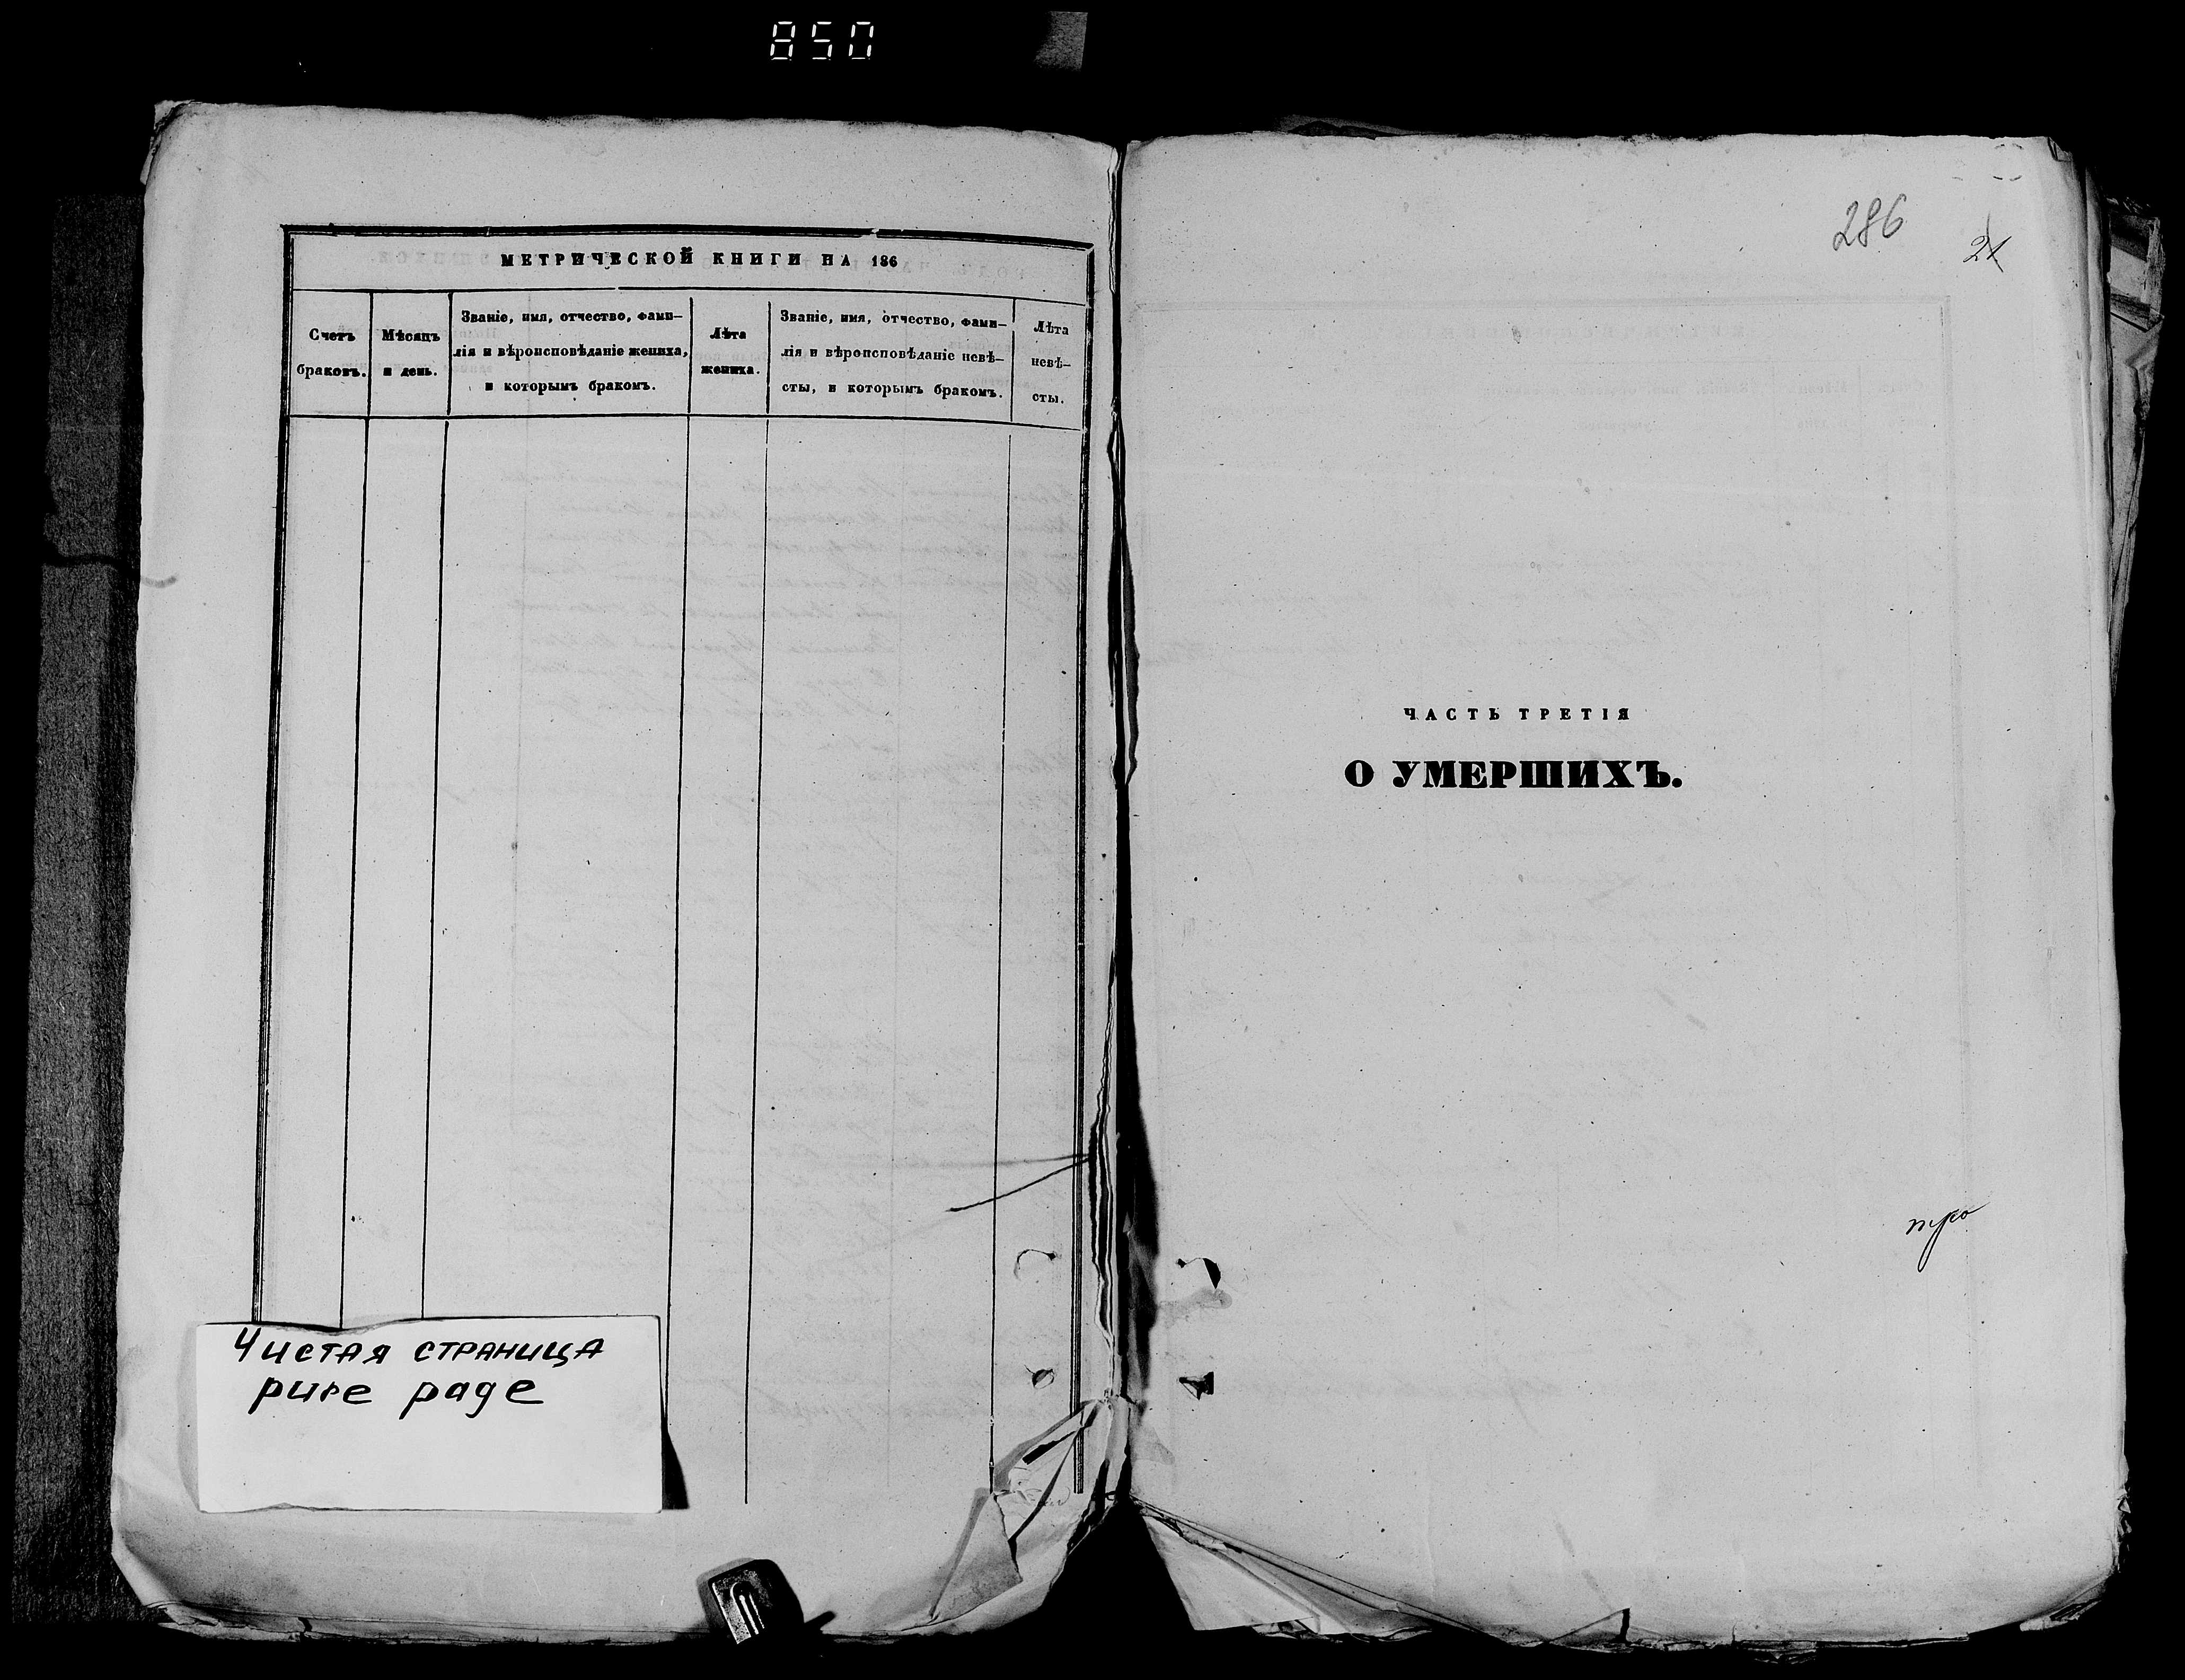 850
МЕТРИЧЕСКОЙ КНИГИ НА 186
Счетъ
браковъ.
Мѣсяцъ
и день.
Званіе, имя, отчество, фами-
лія и вѣроисповѣданіе жениха,
и которымъ бракомъ.
Лѣта
жениха.
Званіе, имя, отчество, фами-
лія и вѣроисповѣданіе невѣ-
сты, и которымъ бракомъ.
Лѣта
невѣ-
сты.
Чистая страница
pure page
286
ЧАСТЬ ТРЕТІЯ
О УМЕРШИХЪ.